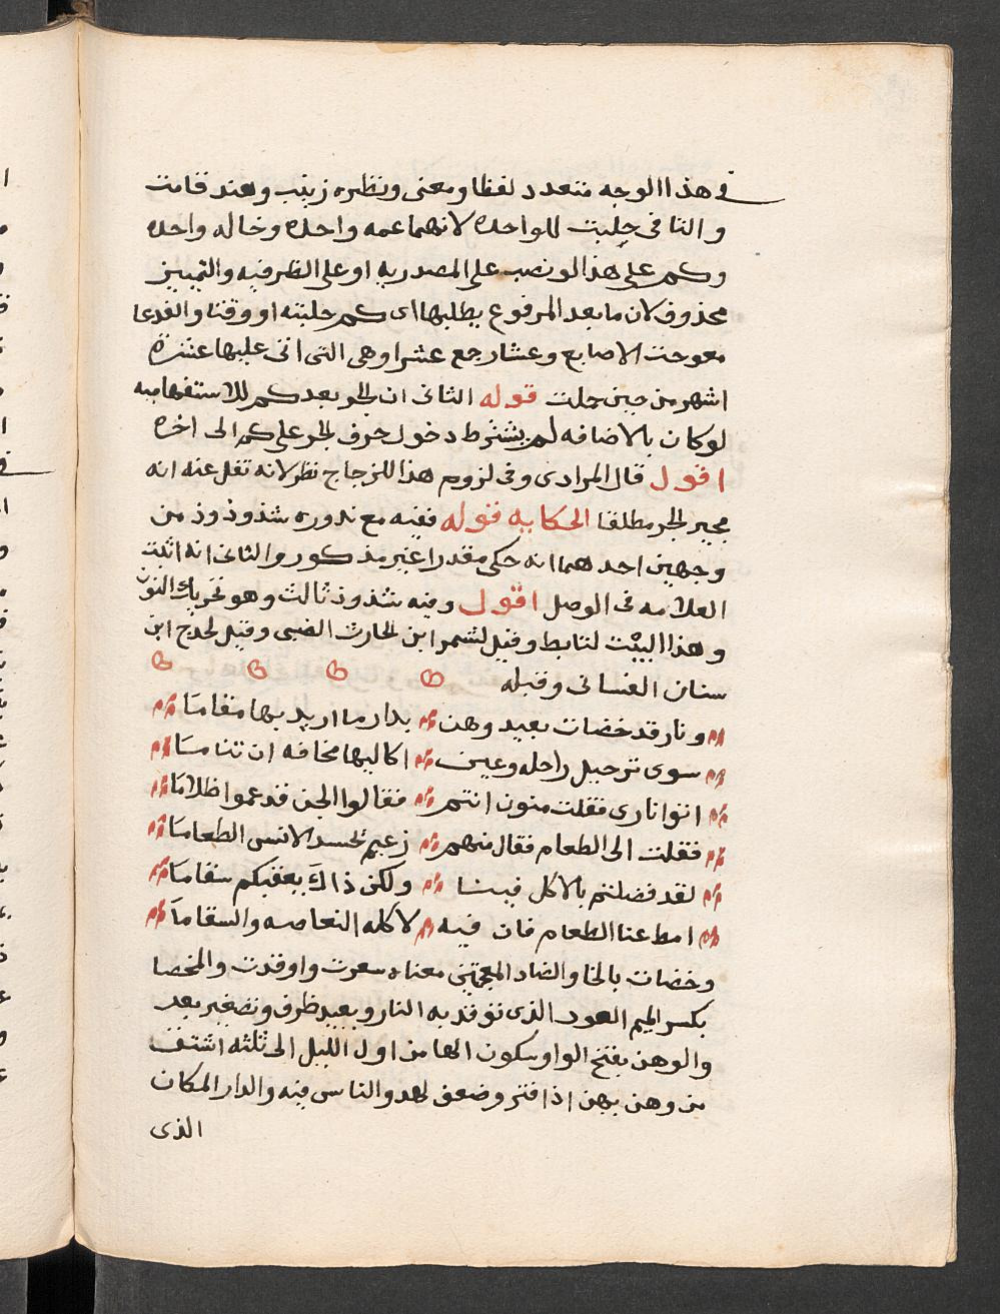 في هذا الوجه متعدد لفظا ومعنى ونظيره زينب وهند قامت
والتا في حلبت للواحده لانهما عمه واحده وخاله واحده
وكم على هذا الو نصب على المصدريه او على الظرفيه والتمييز
محذوف لان ما بعد المرفوع يطلبها اى كم حلبته او وقتا والفدعا
معوجت الاصابع وعشار جمع عشرا وهى التى اتى عليها عشرة
اشهر من حين حملت قوله الثانى ان الجر بعد كم للاستفهاميه
لو كان بالاضافه لم يشترط دخول حرف الجر على كم الى اخره
اقول قال المرادى وفى لزوم هذا للزجاج نظر لانه نقل عنه انه
يجيز الجر مطلقا الحكايه قوله ففيه مع ندوره شذوذ وذ من
وجهين احدهما انه حكى مقدرا غير مذكور والثانى انه اثبت
العلامه فى الوصل اقول وفيه شذوذ ثالث وهو تحريك النون
وهذا البيت لتابط وقيل لشمر ابن الحارث الضبى وقيل لجدع ابن
سنان الغسانى وقبله
ونار قد خضات بعيد وهن بدار ما اريد بها مقاما
سوى ترحيل راحله وعين اكاليها مخافه ان تناما
اتوا نارى فقلت منون انتم فقالوا الجن قد عموا ظلاما
فقلت الى الطعام فقال منهم زعيم نحسد الانس الطعاما
لقد فضلتم بالاكل فينا ولكن ذاك يعقبكم سقاما
امط عنا الطعام فان فيه لاكله النغاصه والسقاما
وخضات بالخا والضاد المعجمتين معناه سعرت واوقدت والمخضا
بكسر الميم العود الذى توقد به النار وبعيد ظرف وتصغير بعد
والوهن بفتح الواو وسكون الها من اول الليل الى ثلثه اشتق
من وهن يهن اذا فتر وضعف لهدو الناس فيه والدار المكان
الذى